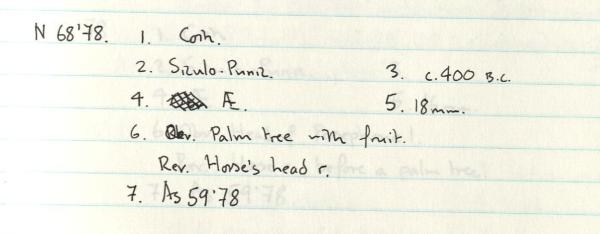 N 68'78. 1. Coin.
2. Siculo-Punic. 3. c.400 B.C.
4. Æ. 5. 18mm.
6. Obv. Palm tree with fruit.
Rev. Horse's head r.
7. As 59'78